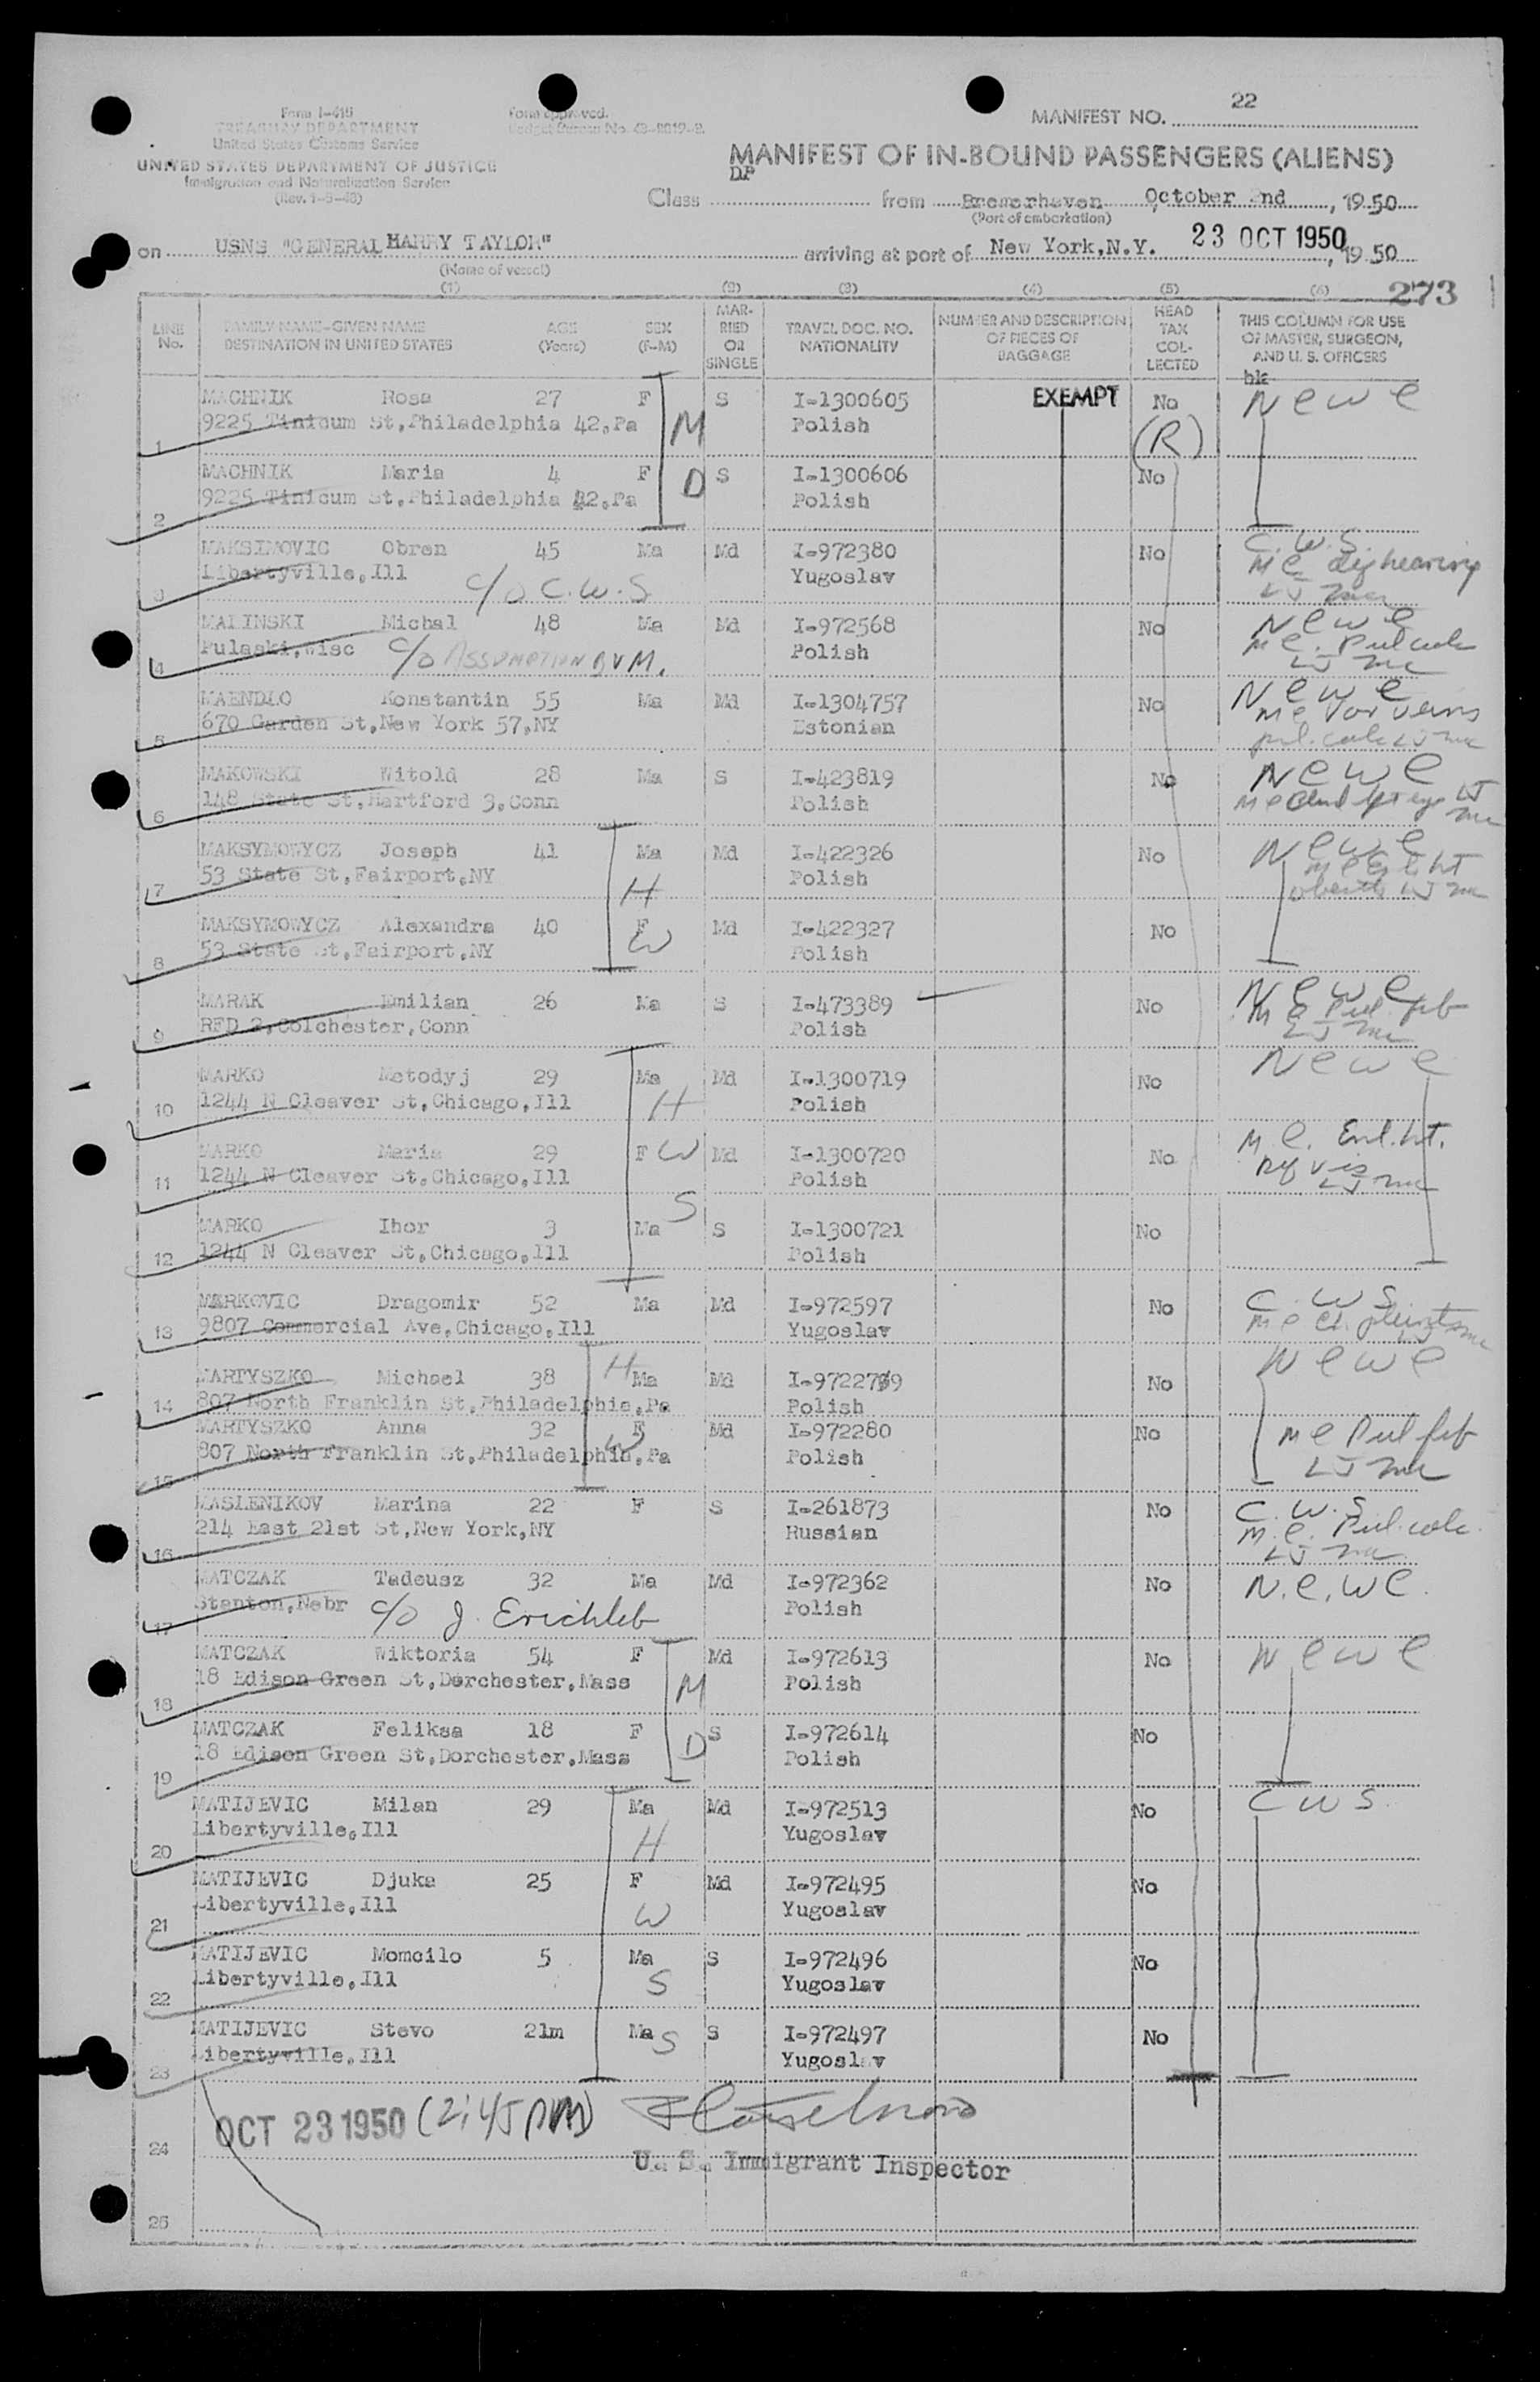 22
Form I-415
TREASURY DEPARTMENT
United States Customs Service
UNITED STATES DEPARTMENT OF JUSTICE
Immigration and Naturalization Service
(Rev. 1-5-48)
Form approved.
Budget Bureau No. 43-R019-2.
MANIFEST NO.
MANIFEST OF IN-BOUND PASSENGERS (ALIENS)
Class DP from Bremerhaven October 2nd, 1950
(Port of embarkation)
on USNS "GENERAL HARRY TAYLOR" arriving at port of New York, N.Y. 23 OCT 1950, 1950
(Name of vessel)
273
(1) (2) (3) (4) (5) (6)
LINE No. FAMILY NAME-GIVEN NAME DESTINATION IN UNITED STATES AGE (Years) SEX (F-M) MARRIED OR SINGLE TRAVEL DOC. NO. NATIONALITY NUMBER AND DESCRIPTION OF PIECES OF BAGGAGE HEAD TAX COLLECTED THIS COLUMN FOR USE OF MASTER, SURGEON, AND U. S. OFFICERS
MACHNIK Rosa 27 F S I-1300605 EXEMPT No N e w e
1 9225 Tinicum St, Philadelphia 42, Pa M Polish (R)
MACHNIK Maria 4 F D S I-1300606 No
2 9225 Tinicum St, Philadelphia 42, Pa Polish
MAKSIMOVIC Obren 45 Ma Md I-972380 No C. W. S.
3 Libertyville, Ill c/o C. W. S Yugoslav
MALINSKI Michal 48 Ma Md I-972568 No N e w e
4 Pulaski, Wisc c/o ASSUMPTION B V M. Polish
MAENDLO Konstantin 55 Ma Md I-1304757 No N e w e
5 670 Garden St, New York 57, NY Estonian
MAKOWSKI Witold 28 Ma S I-423819 No N e w e
6 148 State St, Hartford 3, Conn Polish
MAKSYMOWYCZ Joseph 41 Ma Md I-422326 No N e w e
7 53 State St, Fairport, NY H Polish
MAKSYMOWYCZ Alexandra 40 F Md I-422327 No
8 53 State St, Fairport, NY W Polish
MARAK Emilian 26 Ma S I-473389 No N e w e
9 RFD 2, Colchester, Conn Polish
MARKO Metodyj 29 Ma Md I-1300719 No N e w e
10 1244 N Cleaver St, Chicago, Ill H Polish
MARKO Maria 29 F W Md I-1300720 No
11 1244 N Cleaver St, Chicago, Ill Polish
MARKO Ihor 3 Ma S S I-1300721 No
12 1244 N Cleaver St, Chicago, Ill Polish
MARKOVIC Dragomir 52 Ma Md I-972597 No C. W S
13 9807 Commercial Ave, Chicago, Ill Yugoslav
MARTYSZKO Michael 38 H Ma Md I-972279 No N e w e
14 807 North Franklin St, Philadelphia, Pa Polish
MARTYSZKO Anna 32 F Md I-972280 No
15 807 North Franklin St, Philadelphia, Pa W Polish
MASLENIKOV Marina 22 F S I-261873 No C. W. S
16 214 East 21st St, New York, NY Russian
MATCZAK Tadeusz 32 Ma Md I-972362 No N. e. w e.
17 Stanton, Nebr c/o J. Erichleb Polish
MATCZAK Wiktoria 54 F Md I-972613 No N e w e
18 18 Edison Green St, Dorchester, Mass M Polish
MATCZAK Feliksa 18 F D S I-972614 No
19 18 Edison Green St, Dorchester, Mass Polish
MATIJEVIC Milan 29 Ma Md I-972513 No C W S.
20 Libertyville, Ill H Yugoslav
MATIJEVIC Djuka 25 F Md I-972495 No
21 Libertyville, Ill W Yugoslav
MATIJEVIC Momcilo 5 Ma S I-972496 No
22 Libertyville, Ill S Yugoslav
MATIJEVIC Stevo 21m Ma S S I-972497 No
23 Libertyville, Ill Yugoslav
OCT 23 1950 (2:45 PM)
24 U. S. Immigrant Inspector
25